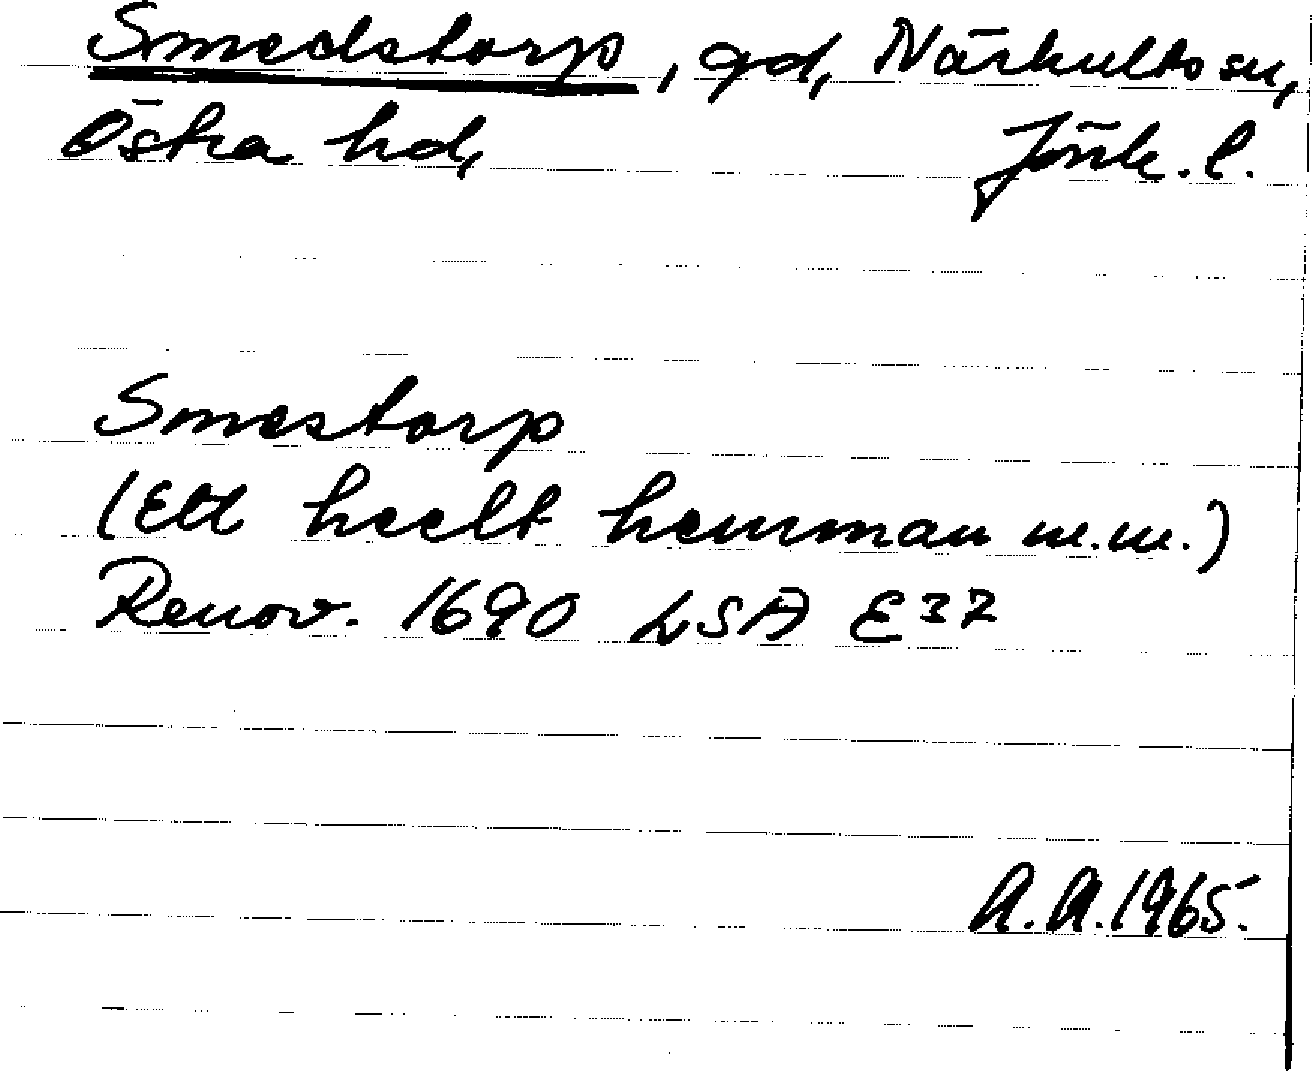 Smedstorp, gd, Närkulto sn,
Östra hd, Jönk. l.
Smestorp
(Ett heelt hemman m.m.)
Renov. 1690 LSA E37
A.A. 1965.